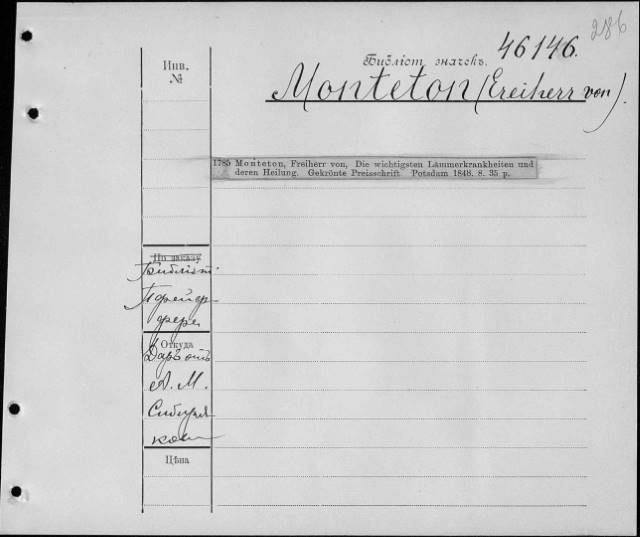 286
Инв.
№
Библіот значекъ. 46146.
Monteton (Freiherr von).
1785 Monteton, Freiherr von, Die wichtigsten Lämmerkrankheiten und
deren Heilung. Gekrönte Preisschrift Potsdam 1848. 8. 35 p.
По заказу
Библіот.
Пфейф-
фера
Откуда
Даръ отъ
А. М.
Сибиря-
кова
Цѣна